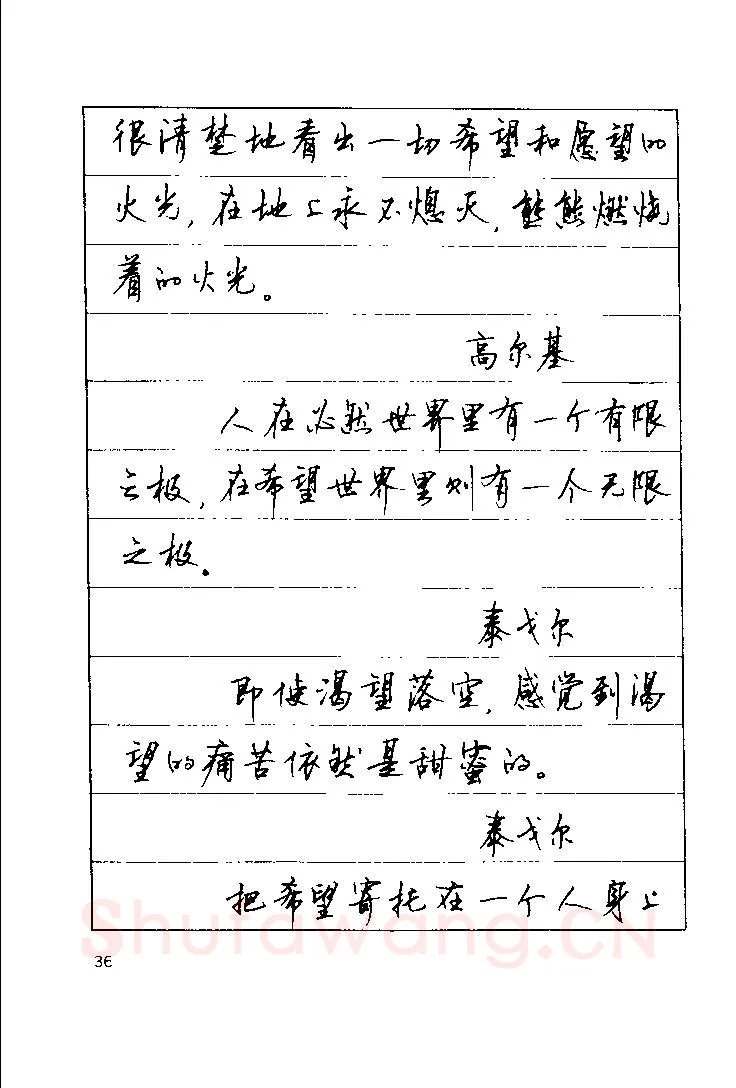 很清楚地看出一切希望和愿望的
火光，在地上永不熄灭，熊熊燃烧
着的火光。
高尔基
人在必然世界里有一个有限
之极，在希望世界里则有一个无限
之极。
泰戈尔
即使渴望落空，感觉到渴
望的痛苦依然是甜蜜的。
泰戈尔
把希望寄托在一个人身上
Shufawang.CN
36